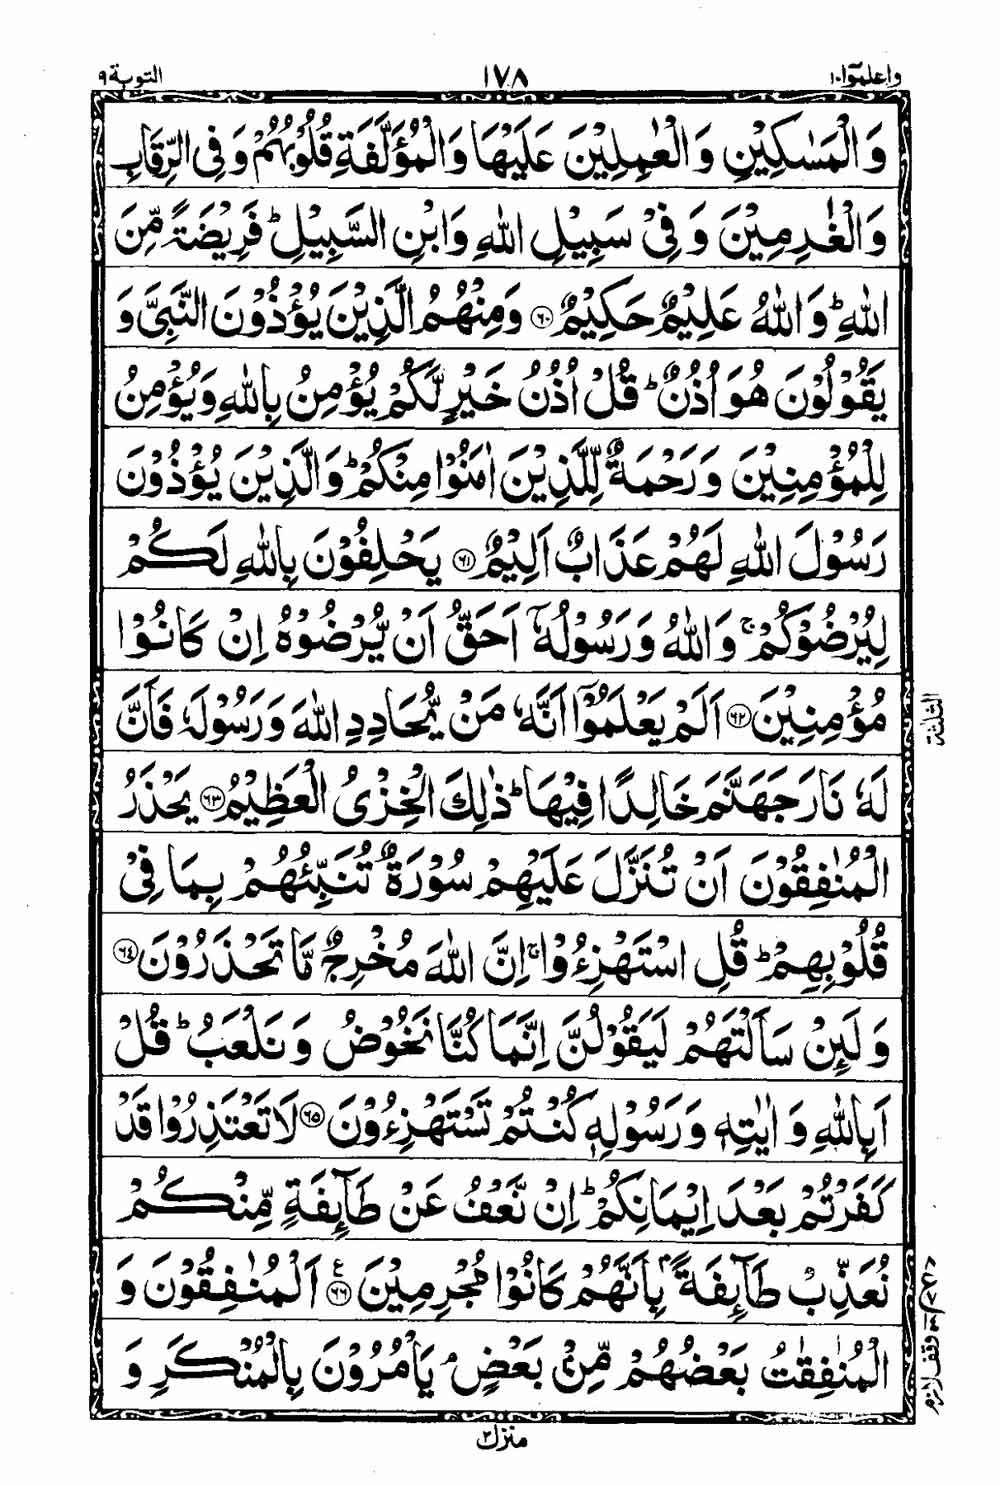 واعلموا ١٠ ١٧٨ التوبة ٩
وَالْمَسٰكِيْنِ وَالْعٰمِلِيْنَ عَلَيْهَا وَالْمُؤَلَّفَةِ قُلُوْبُهُمْ وَفِى الرِّقَابِ
وَالْغٰرِمِيْنَ وَفِىْ سَبِيْلِ اللّٰهِ وَابْنِ السَّبِيْلِؕ فَرِيْضَةً مِّنَ
اللّٰهِؕ وَاللّٰهُ عَلِيْمٌ حَكِيْمٌ ۝٦٠ وَمِنْهُمُ الَّذِيْنَ يُؤْذُوْنَ النَّبِىَّ وَ
يَقُوْلُوْنَ هُوَ اُذُنٌؕ قُلْ اُذُنُ خَيْرٍ لَّكُمْ يُؤْمِنُ بِاللّٰهِ وَيُؤْمِنُ
لِلْمُؤْمِنِيْنَ وَرَحْمَةٌ لِّلَّذِيْنَ اٰمَنُوْا مِنْكُمْؕ وَالَّذِيْنَ يُؤْذُوْنَ
رَسُوْلَ اللّٰهِ لَهُمْ عَذَابٌ اَلِيْمٌ ۝٦١ يَحْلِفُوْنَ بِاللّٰهِ لَكُمْ
لِيُرْضُوْكُمْۚ وَاللّٰهُ وَرَسُوْلُهٗۤ اَحَقُّ اَنْ يُّرْضُوْهُ اِنْ كَانُوْا
مُؤْمِنِيْنَ ۝٦٢ اَلَمْ يَعْلَمُوْۤا اَنَّهٗ مَنْ يُّحَادِدِ اللّٰهَ وَرَسُوْلَهٗ فَاَنَّ
لَهٗ نَارَ جَهَنَّمَ خَالِدًا فِيْهَاؕ ذٰلِكَ الْخِزْىُ الْعَظِيْمُ ۝٦٣ يَحْذَرُ
الْمُنٰفِقُوْنَ اَنْ تُنَزَّلَ عَلَيْهِمْ سُوْرَةٌ تُنَبِّئُهُمْ بِمَا فِىْ
قُلُوْبِهِمْؕ قُلِ اسْتَهْزِءُوْاۚ اِنَّ اللّٰهَ مُخْرِجٌ مَّا تَحْذَرُوْنَ ۝٦٤
وَلَئِنْ سَاَلْتَهُمْ لَيَقُوْلُنَّ اِنَّمَا كُنَّا نَخُوْضُ وَنَلْعَبُؕ قُلْ
اَبِاللّٰهِ وَاٰيٰتِهٖ وَرَسُوْلِهٖ كُنْتُمْ تَسْتَهْزِءُوْنَ ۝٦٥ لَا تَعْتَذِرُوْا قَدْ
كَفَرْتُمْ بَعْدَ اِيْمَانِكُمْؕ اِنْ نَّعْفُ عَنْ طَآئِفَةٍ مِّنْكُمْ
نُعَذِّبْ طَآئِفَةًۢ بِاَنَّهُمْ كَانُوْا مُجْرِمِيْنَ ۝٦٦ ع اَلْمُنٰفِقُوْنَ وَ
الْمُنٰفِقٰتُ بَعْضُهُمْ مِّنْۢ بَعْضٍۘ يَاْمُرُوْنَ بِالْمُنْكَرِ وَ
منزل ٢
الثلثة
وقف لازم